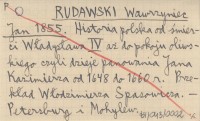 R
RUDAWSKI Wawrzyniec
Jan 1855. Historja polska od śmier-
ci Władysława IV aż do pokoju oliws-
kiego czyli dzieje panowania Jana
Kazimierza od 1648 do 1660 r. Prze-
kład Włodzimierza Spasowicza. –
Petersburg i Mohylew.